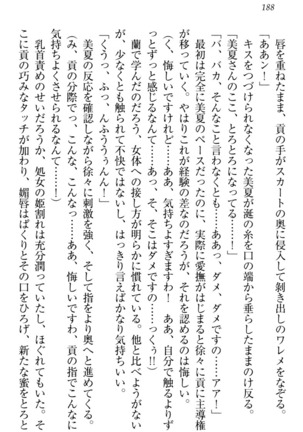 188
唇を重ねたまま、貢の手がスカートの奥に侵入して剝き出しのワレメをなぞる。
「ああっ！」
キスをつづけられなくなった美夏が涎の糸を口の端から垂らしたままのけ反る。
「美夏さんのここ、とろとろになってる……」
「バ、バカ、そんなこと言わなくとも……あああっ、ダメ、ダメですの……アア！」
最初は完全に美夏のペースだったのに、実際に愛撫がはじまると徐々に貢に主導権
が移っていく。やはりこれが経験の差なのだろうが、それを認めるのは悔しい。
（く、悔しいですけれど……ああ、気持ちよすぎますわ！　ああ、自分で触るよりず
っとずっと感じるなんて……あっ、そ、そこはダメですの……っくぅ‼）
蘭で学んだのだろう、女体への接し方が明らかに慣れている。他と比べようがない
が、少なくとも下手とか不快ではないし、はっきり言えばかなり気持ちいい。
「くうっ、ふっ、んふううぅんっ！」
美夏の反応を確認しながら徐々に刺激を強く、そして指をより奥へと進めてくる。
（こ、貢の分際でっ、こんな、こんなっ……ああ、悔しいですわ、貢の指でこんなに
気持ちよくされるなんて……ッ！）
乳首責めのせいだろうか、処女の姫割れは充分潤っていたし、ほぐれてもいた。そ
こに貢の巧みなタッチが加わり、媚唇はぱくりとその口をひろげ、新たな蜜をとろと